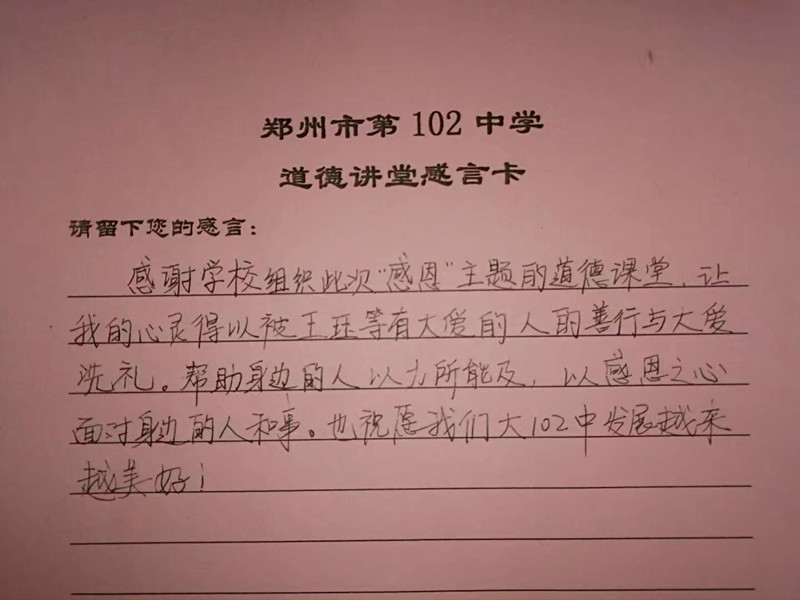 郑州市第 102 中学
道德讲堂感言卡
请留下您的感言：
感谢学校组织此次“感恩”主题的道德课堂，让
我的心灵得以被王珏等有大爱的人的善行与大爱
洗礼。帮助身边的人以力所能及，以感恩之心
面对身边的人和事。也祝愿我们大102中发展越来
越美好！